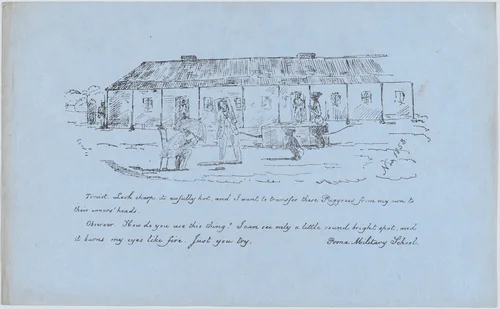 Nov 1858
Tourist. Look sharp, its awfully hot, and I want to transfer these Puggrees from my own to
their owners' heads.
Observer. How do you use this thing? I can see only a little round bright spot, and
it burns my eyes like fire. Just you try. Poona Military School.